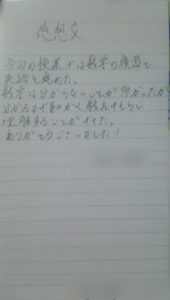 感想文
今回の授業では数学の復習と、
英語を進めた。
数学は分からないことが多かったが
分かるまで細かく教えてもらい
理解することができた。
ありがとうございました!